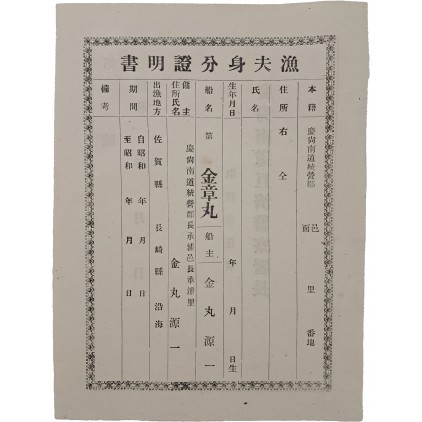 漁夫身分證明書
本籍 慶尙南道統營郡 邑面 里 番地
住所 右仝
氏名
生年月日 年 月 日生
船名 第 金章丸 船主 金丸源一
傭主住所氏名 慶尙南道統營郡長承浦邑長承浦里 金丸源一
出漁地方 佐賀縣 長崎縣沿海
期間 自昭和 年 月 日 至昭和 年 月 日
備考